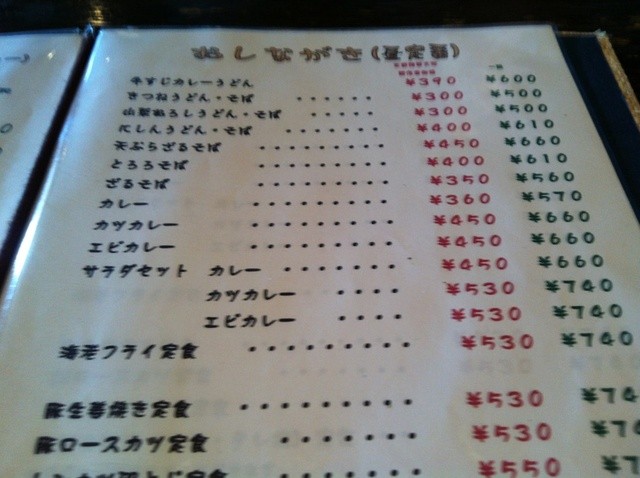 おしながき(昼定番)
牛すじカレーうどん ¥390 ¥600
きつねうどん・そば ・・・・・・ ¥300 ¥500
山菜おろしうどん・そば ・・・・・ ¥300 ¥500
にしんうどん・そば ・・・・・・・ ¥400 ¥610
天ぷらざるそば ・・・・・・・・・ ¥450 ¥660
とろろそば ・・・・・・・・・ ¥400 ¥610
ざるそば ・・・・・・・・・ ¥350 ¥560
カレー ・・・・・・・・・ ¥360 ¥570
カツカレー ・・・・・・・・・ ¥450 ¥660
エビカレー ・・・・・・・・・ ¥450 ¥660
サラダセット カレー ・・・・・・・ ¥450 ¥660
カツカレー ・・・・ ¥530 ¥740
エビカレー ・・・・ ¥530 ¥740
海老フライ定食 ・・・・・・・・・ ¥530 ¥740
豚生姜焼き定食 ・・・・・・・・・ ¥530 ¥74
豚ロースカツ定食 ・・・・・・・ ¥530 ¥7
¥550